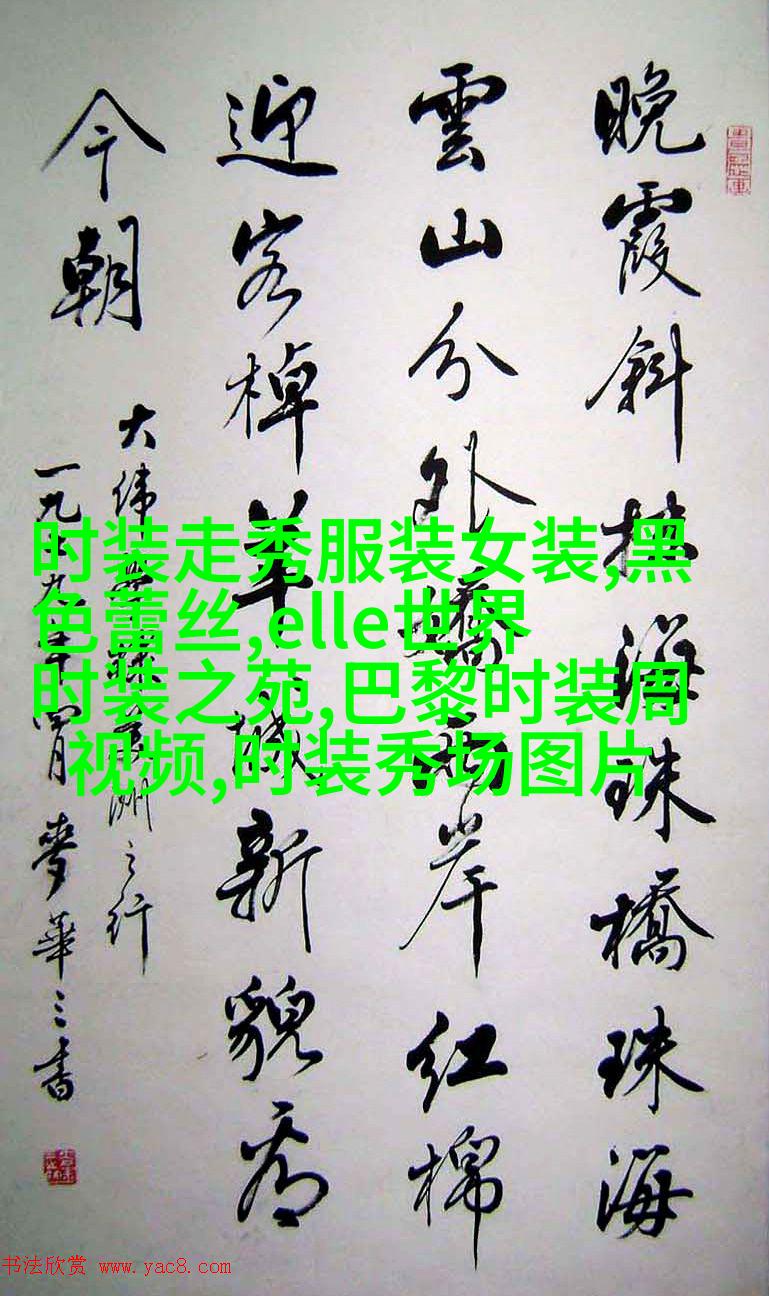 晚霞斜抹海珠橋珠海
雲山分外嬌兩岸紅棉
迎客棹羊城新貌看
今朝
大緯洲之行
一九七九年四月麥華三書
时装走秀服装女装,黑
色蕾丝,elle世界
时装之苑,巴黎时装周
视频,时装秀场图片
书法欣赏 www.yac8.com